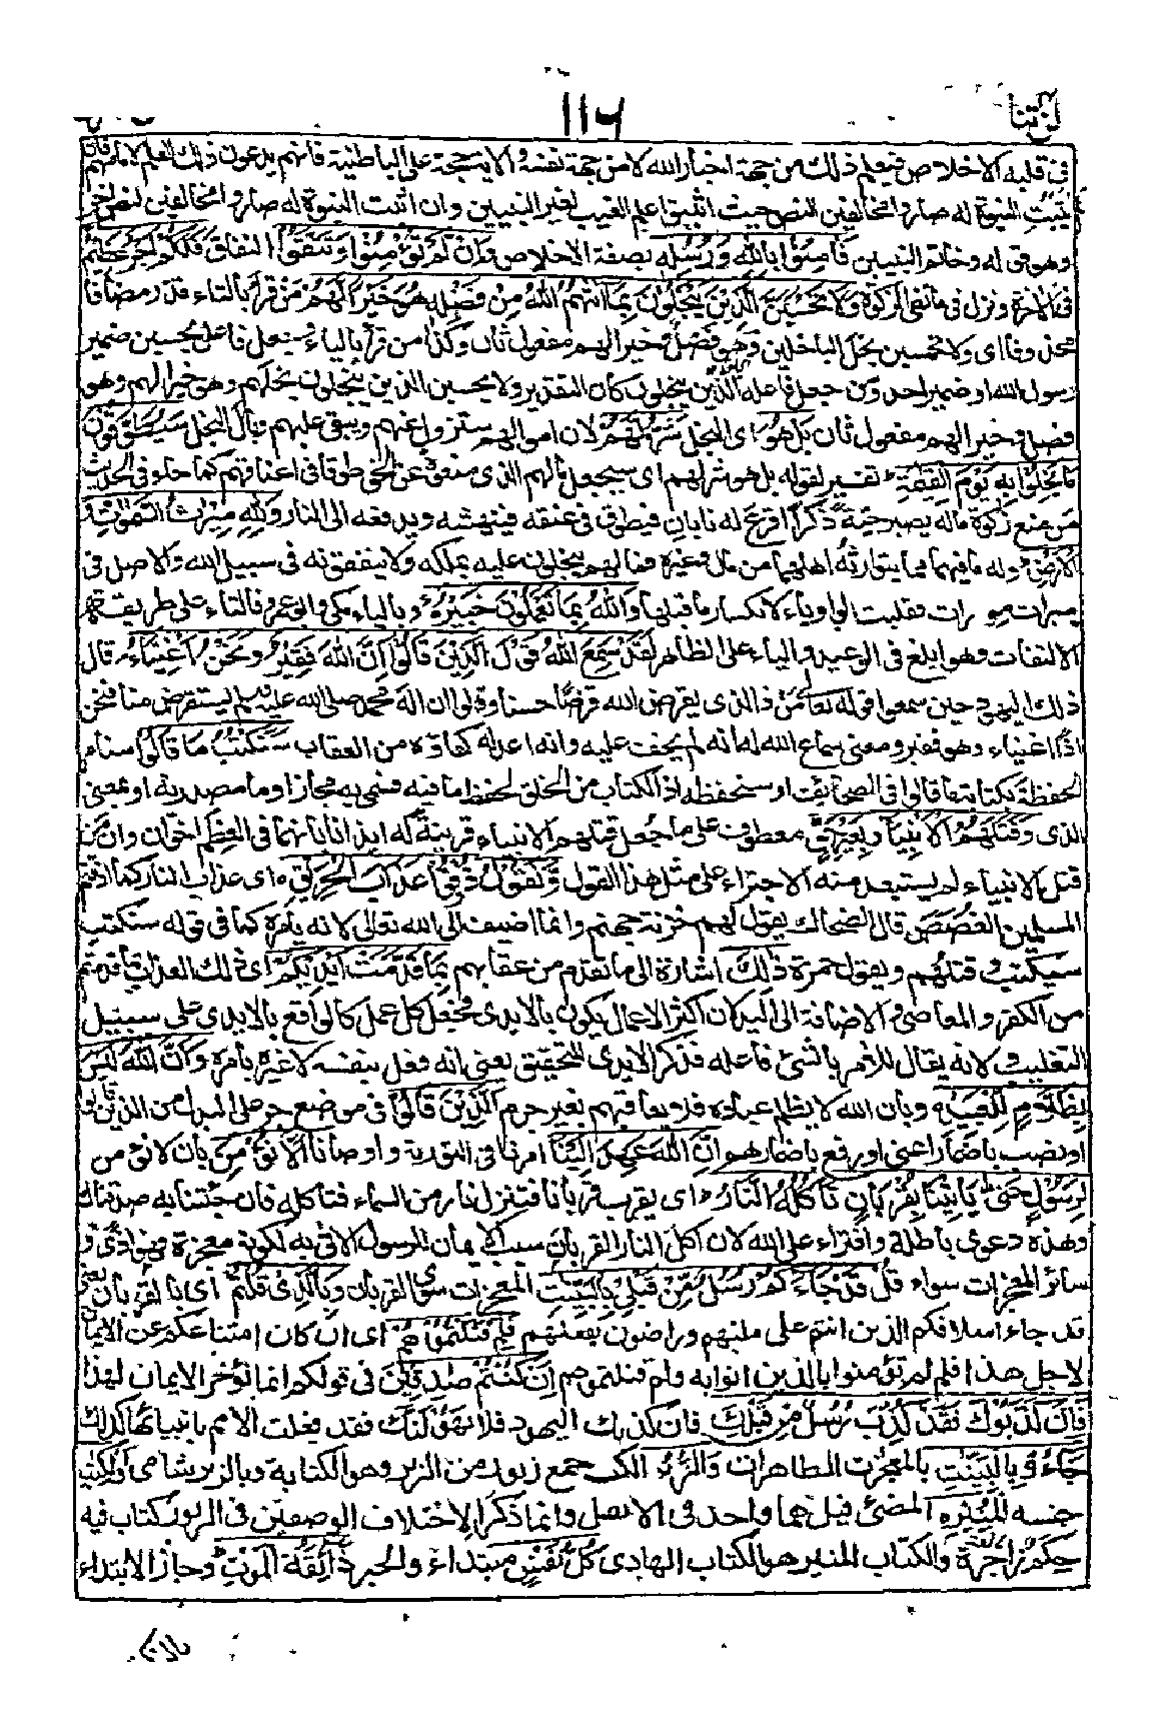 لن تنا
١١٦
فى قلبه الاخلاص فيعلم ذلك من جهة اخبار الله لا من جهة نفسه والاية حجة على الباطنية فانهم يدعون ذلك العلم لامامهم فان
يثبت النبوة له صاروا مخالفين للنص حيث اثبتوا علم الغيب لغير النبيين وان اثبت النبوة له صاروا مخالفين لنص اخر
وهو قوله وخاتم النبيين فَاٰمِنُوْا بِاللّٰهِ وَرُسُلِهٖ بصفة الاخلاص وَاِنْ تُؤْمِنُوْا وَتَتَّقُوْا النفاق فَلَكُمْ اَجْرٌ عَظِيْمٌ
فى الاخرة ونزل فى مانعى الزكوة وَلَا تَحْسَبَنَّ الَّذِيْنَ يَبْخَلُوْنَ بِمَا اٰتٰهُمُ اللّٰهُ مِنْ فَضْلِهٖ هُوَ خَيْرًا لَّهُمْ مَنْ قرأ بالتاء قدر مضافا
محذوفا اى ولا تحسبن بخل الباخلين وهو فصل وخيرا لهم مفعول ثان وكذا من قرأ بالياء وجعل فاعل يحسبن ضمير
رسول الله او ضمير احد ومن جعل فاعله الذين يبخلون كان التقدير ولا يحسبن الذين يبخلون بخلهم وهو خيرا لهم وهو
فصل وخيرا لهم مفعول ثان بَلْ هُوَ اى البخل شَرٌّ لَّهُمْ لان اموالهم ستزول عنهم ويبقى عليهم وبال البخل سَيُطَوَّقُوْنَ
مَا بَخِلُوْا بِهٖ يَوْمَ الْقِيٰمَةِ تفسير لقوله بل هو شر لهم اى سيجعل مالهم الذى منعوه عن الحق طوقا فى اعناقهم كما جاء فى الحديث
من منع زكوة ماله يصير حية ذكرا اقرع له نابان فيطوق فى عنقه فينهشه ويدفعه الى النار وَلِلّٰهِ مِيْرَاثُ السَّمٰوٰتِ وَ
الْاَرْضِ وله ما فيهما مما يتوارثه اهلهما من مال وغيره فما لهم يبخلون عليه بملكه ولا ينفقونه فى سبيل الله والاصل فى
ميراث موراث فقلبت الواو ياء لانكسار ما قبلها وَاللّٰهُ بِمَا تَعْمَلُوْنَ خَبِيْرٌ وبالياء مكى وابو عمرو فالتاء على طريقة
الالتفات وهو ابلغ فى الوعيد والياء على الظاهر لَقَدْ سَمِعَ اللّٰهُ قَوْلَ الَّذِيْنَ قَالُوْا اِنَّ اللّٰهَ فَقِيْرٌ وَنَحْنُ اَغْنِيَاءُ قال
ذلك اليهود حين سمعوا قوله تعالى من ذا الذى يقرض الله قرضا حسنا وقالوا ان اله محمد صلى الله عليه وسلم يستقرض منا فنحن
اذًا اغنياء وهو فقير ومعنى سماع الله له انه لم يخف عليه وانه اعد له كفاءه من العقاب سَنَكْتُبُ مَا قَالُوْا سنامر
الحفظة بكتابة ما قالوا فى الصحائف او سنحفظه اذ الكتاب من الخلق لحفظ ما فيه فسمى به مجازا وما مصدرية او بمعنى
الذى وَقَتْلَهُمُ الْاَنْبِيَاءَ بِغَيْرِ حَقٍّ معطوف على ما جعل قتلهم الانبياء قرينة له ايذانا بانهما فى العظم اخوان وان من
قتل الانبياء لم يستبعد منه الاجتراء على مثل هذا القول وَنَقُوْلُ ذُوْقُوْا عَذَابَ الْحَرِيْقِ اى عذاب النار كما اذقتم
المسلمين الغصص قال الضحاك يقول لهم خزنة جهنم وانما اضيف الى الله تعالى لانه بامره كما فى قوله سنكتب
سيكتب وقتلهم ويقول حمزة ذٰلِكَ اشارة الى ما تقدم من عقابهم بِمَا قَدَّمَتْ اَيْدِيْكُمْ اى ذلك العذاب بما قدمتم
من الكفر والمعاصى والاضافة الى اليد لان اكثر الاعمال يكون بالايدى فجعل كل عمل كالواقع بالايدى على سبيل
التغليب ولانه يقال للامر بالشئ فاعله فذكر الايدى للتحقيق يعنى انه فعل بنفسه لا غيره بامره وَاَنَّ اللّٰهَ لَيْسَ
بِظَلَّامٍ لِّلْعَبِيْدِ وبان الله لا يظلم عباده فلا يعاقبهم بغير جرم اَلَّذِيْنَ قَالُوْا فى موضع جر على البدل من الذين قالوا
او نصب باضمار اعنى او رفع باضمار هم اِنَّ اللّٰهَ عَهِدَ اِلَيْنَا امرنا فى التورية واوصانا اَلَّا نُؤْمِنَ بان لا نؤمن
لِرَسُوْلٍ حَتّٰى يَاْتِيَنَا بِقُرْبَانٍ تَاْكُلُهُ النَّارُ اى يقرب قربانا فتنزل نار من السماء فتاكله فان جئتنا به صدقناك
وهذه دعوى باطلة وافتراء على الله لان اكل النار القربان سبب الايمان للرسول الاتى به لكونه معجزة فهو اذًا و
سائر المعجزات سواء قُلْ قَدْ جَاءَكُمْ رُسُلٌ مِّنْ قَبْلِيْ بِالْبَيِّنٰتِ المعجزات سوى القربان وَبِالَّذِيْ قُلْتُمْ اى بالقربان يعنى
قد جاء اسلافكم الذين انتم على ملتهم وراضون بفعلهم فَلِمَ قَتَلْتُمُوْهُمْ اى ان كان امتناعكم عن الايمان
لاجل هذا فلم لم تؤمنوا بالذين اتوا به ولم قتلتموهم اِنْ كُنْتُمْ صٰدِقِيْنَ فى قولكم انما نؤخر الايمان لهذا
فَاِنْ كَذَّبُوْكَ فَقَدْ كُذِّبَ رُسُلٌ مِّنْ قَبْلِكَ فان كذبك اليهود فلا يهولنك فقد فعلت الامم بانبيائها كذلك
جَاءُوْ بِالْبَيِّنٰتِ بالمعجزات الظاهرات وَالزُّبُرِ الكتب جمع زبور من الزبر وهو الكتابة وبالزبر شامى وَالْكِتٰبِ
جنسه الْمُنِيْرِ المضئ قيل هما واحد فى الاصل وانما ذكرا لاختلاف الوصفين فى الزبور كتاب فيه
حكم زاجرة والكتاب المنير هو الكتاب الهادى كُلُّ نَفْسٍ مبتداء والخبر ذَائِقَةُ الْمَوْتِ وجاز الابتداء